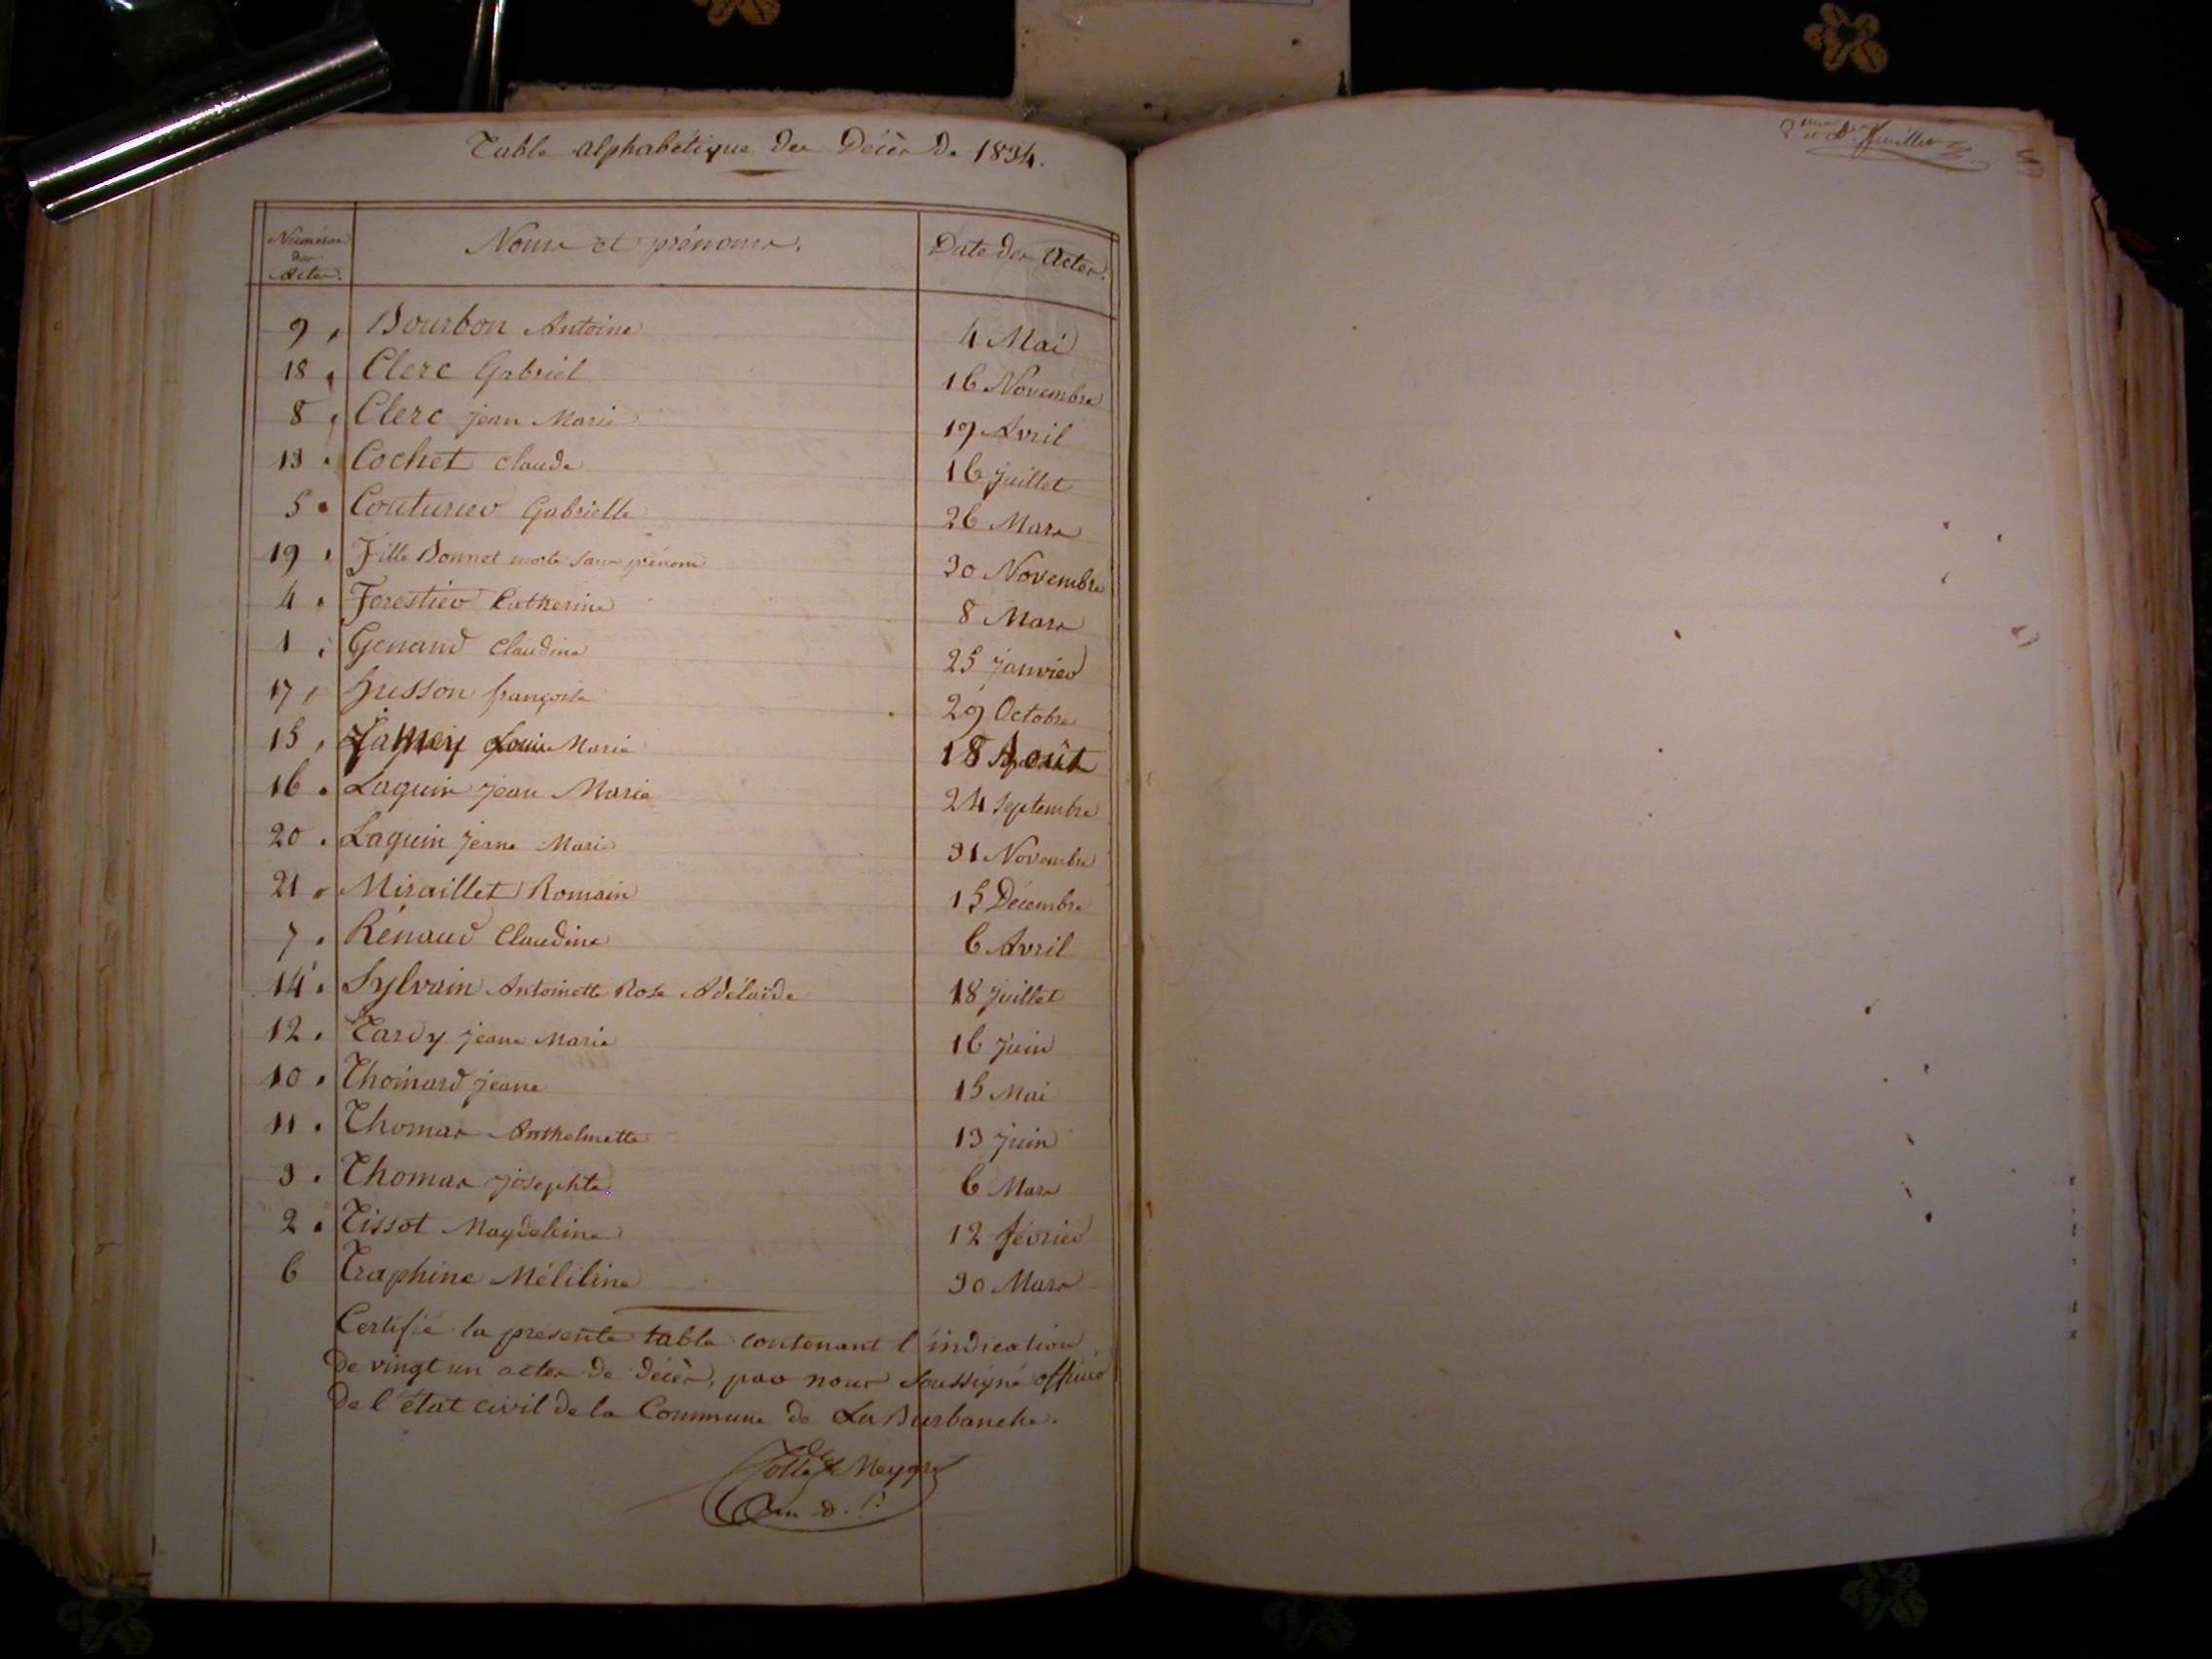 Table alphabétique des Décès de 1834.
Numéros des Actes. Noms et prénoms. Date des Actes.
9 Bourbon Antoine 4 Mai
18 Clerc Gabriel 16 Novembre
8 Clerc jean Marie 19 Avril
13 Cochet Claude 16 juillet
5 Couturier Gabrielle 26 Mars
19 Fille Bonnet morte sans prénom 30 Novembre
4 Forestier Catherine 8 Mars
1 Genand Claudine 25 janvier
17 Husson françoise 29 Octobre
15 Jamey Louise Marie 18 Août
16 Laguin jean Marie 24 septembre
20 Laguin jeane Marie 31 Novembre
21 Miraillet Romain 15 Décembre
7 Rénaud Claudine 6 Avril
14 Sylvain Antoinette Rose Adélaïde 18 juillet
12 Tardy jeane Marie 16 juin
10 Thoinard jeane 15 Mai
11 Thomas Anthelmette 13 juin
3 Thomas josephte 6 Mars
2 Tissot Magdeleine 12 février
6 Traphine Méliline 30 Mars
Certifié la présente table contenant l'indication
de vingt un actes de décès, par nous soussigné officier
de l'état civil de la Commune de La Burbanche.